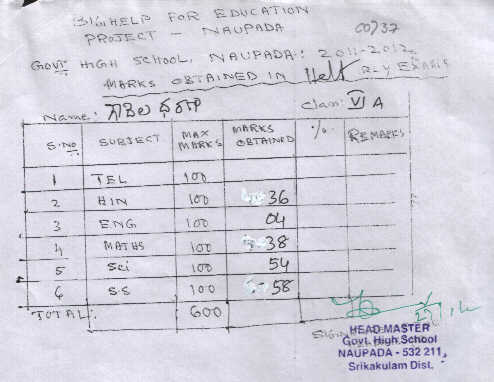 BIGHELP FOR EDUCATION
PROJECT - NAUPADA
GOVT HIGH SCHOOL, NAUPADA: 2011-2012
MARKS OBTAINED IN Half RLY EXAMS
Name: గొకెల ధరణి Class: VI A
S.NO SUBJECT MAX MARKS MARKS OBTAINED % REMARKS
1 TEL 100
2 HIN 100 36
3 ENG 100 04
4 MATHS 100 38
5 Sci 100 54
6 S.S 100 58
TOTAL: 600
HEAD MASTER
Govt. High School
NAUPADA - 532 211,
Srikakulam Dist.